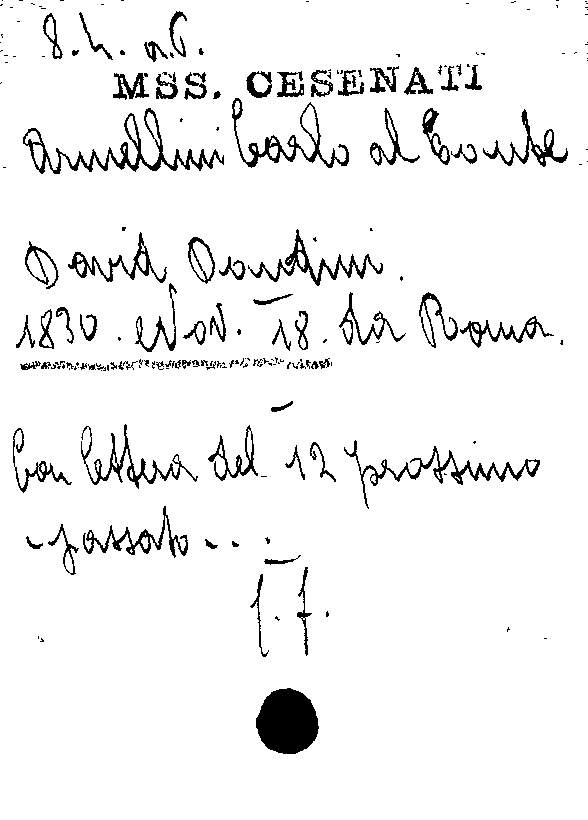 MSS. CESENATI
Armellini Carlo al Conte
David Dandini.
1830. Nov. 18. da Roma.
Con lettera del 12 prossimo
passato...
f. f.